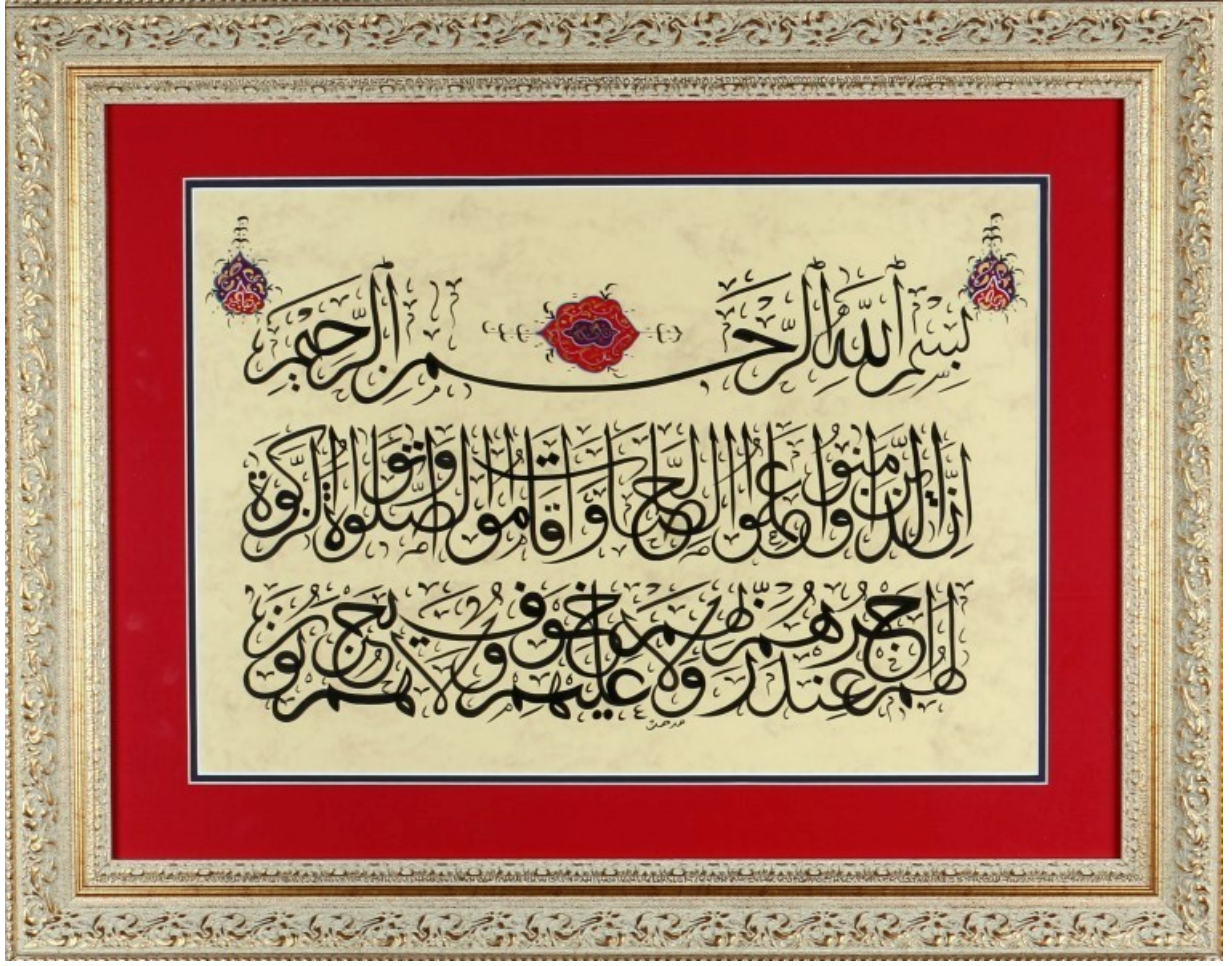 بسم الله الرحمن الرحيم
ان الذين آمنوا وعملوا الصالحات واقاموا الصلوة وآتوا الزكوة
لهم اجرهم عند ربهم ولا خوف عليهم ولا هم يحزنون